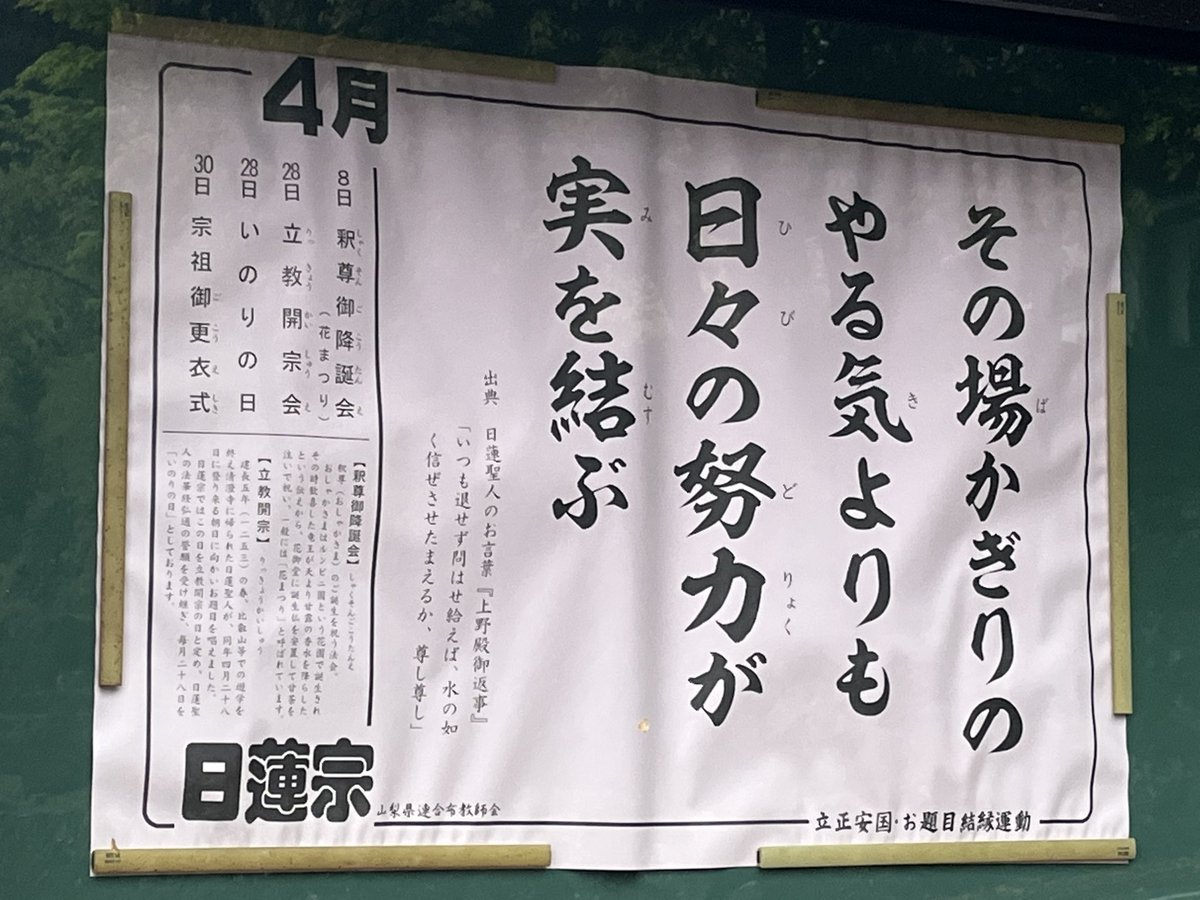 その場かぎりの
やる気よりも
日々の努力が
実を結ぶ
出典 日蓮聖人のお言葉『上野殿御返事』
「いつも退せず問はせ給えば、水の如
く信ぜさせたまえるか、尊し尊し」
4月
8日 釈尊御降誕会
(花まつり)
28日 立教開宗会
28日 いのりの日
30日 宗祖御更衣式
【釈尊御降誕会】しゃくそんごこうたんえ
釈尊(おしゃかさま)のご誕生を祝う法会。
おしゃかさまはルンビニ園という花園で誕生され
その時歓喜した竜王が天より甘露の香水を降らした
という伝えから、花御堂に誕生仏を安置して甘茶を
注いで祝い、一般には「花まつり」と呼ばれています。
【立教開宗】りっきょうかいしゅう
建長五年(一二五三)の春、比叡山等での遊学を
終え清澄寺に帰られた日蓮聖人が、同年四月二十八
日に登り来る朝日に向かいお題目を唱えました。
日蓮宗ではこの日を立教開宗の日と定め、日蓮聖
人の法華経弘通の誓願を受け継ぎ、毎月二十八日を
「いのりの日」としております。
日蓮宗
山梨県連合布教師会
立正安国・お題目結縁運動